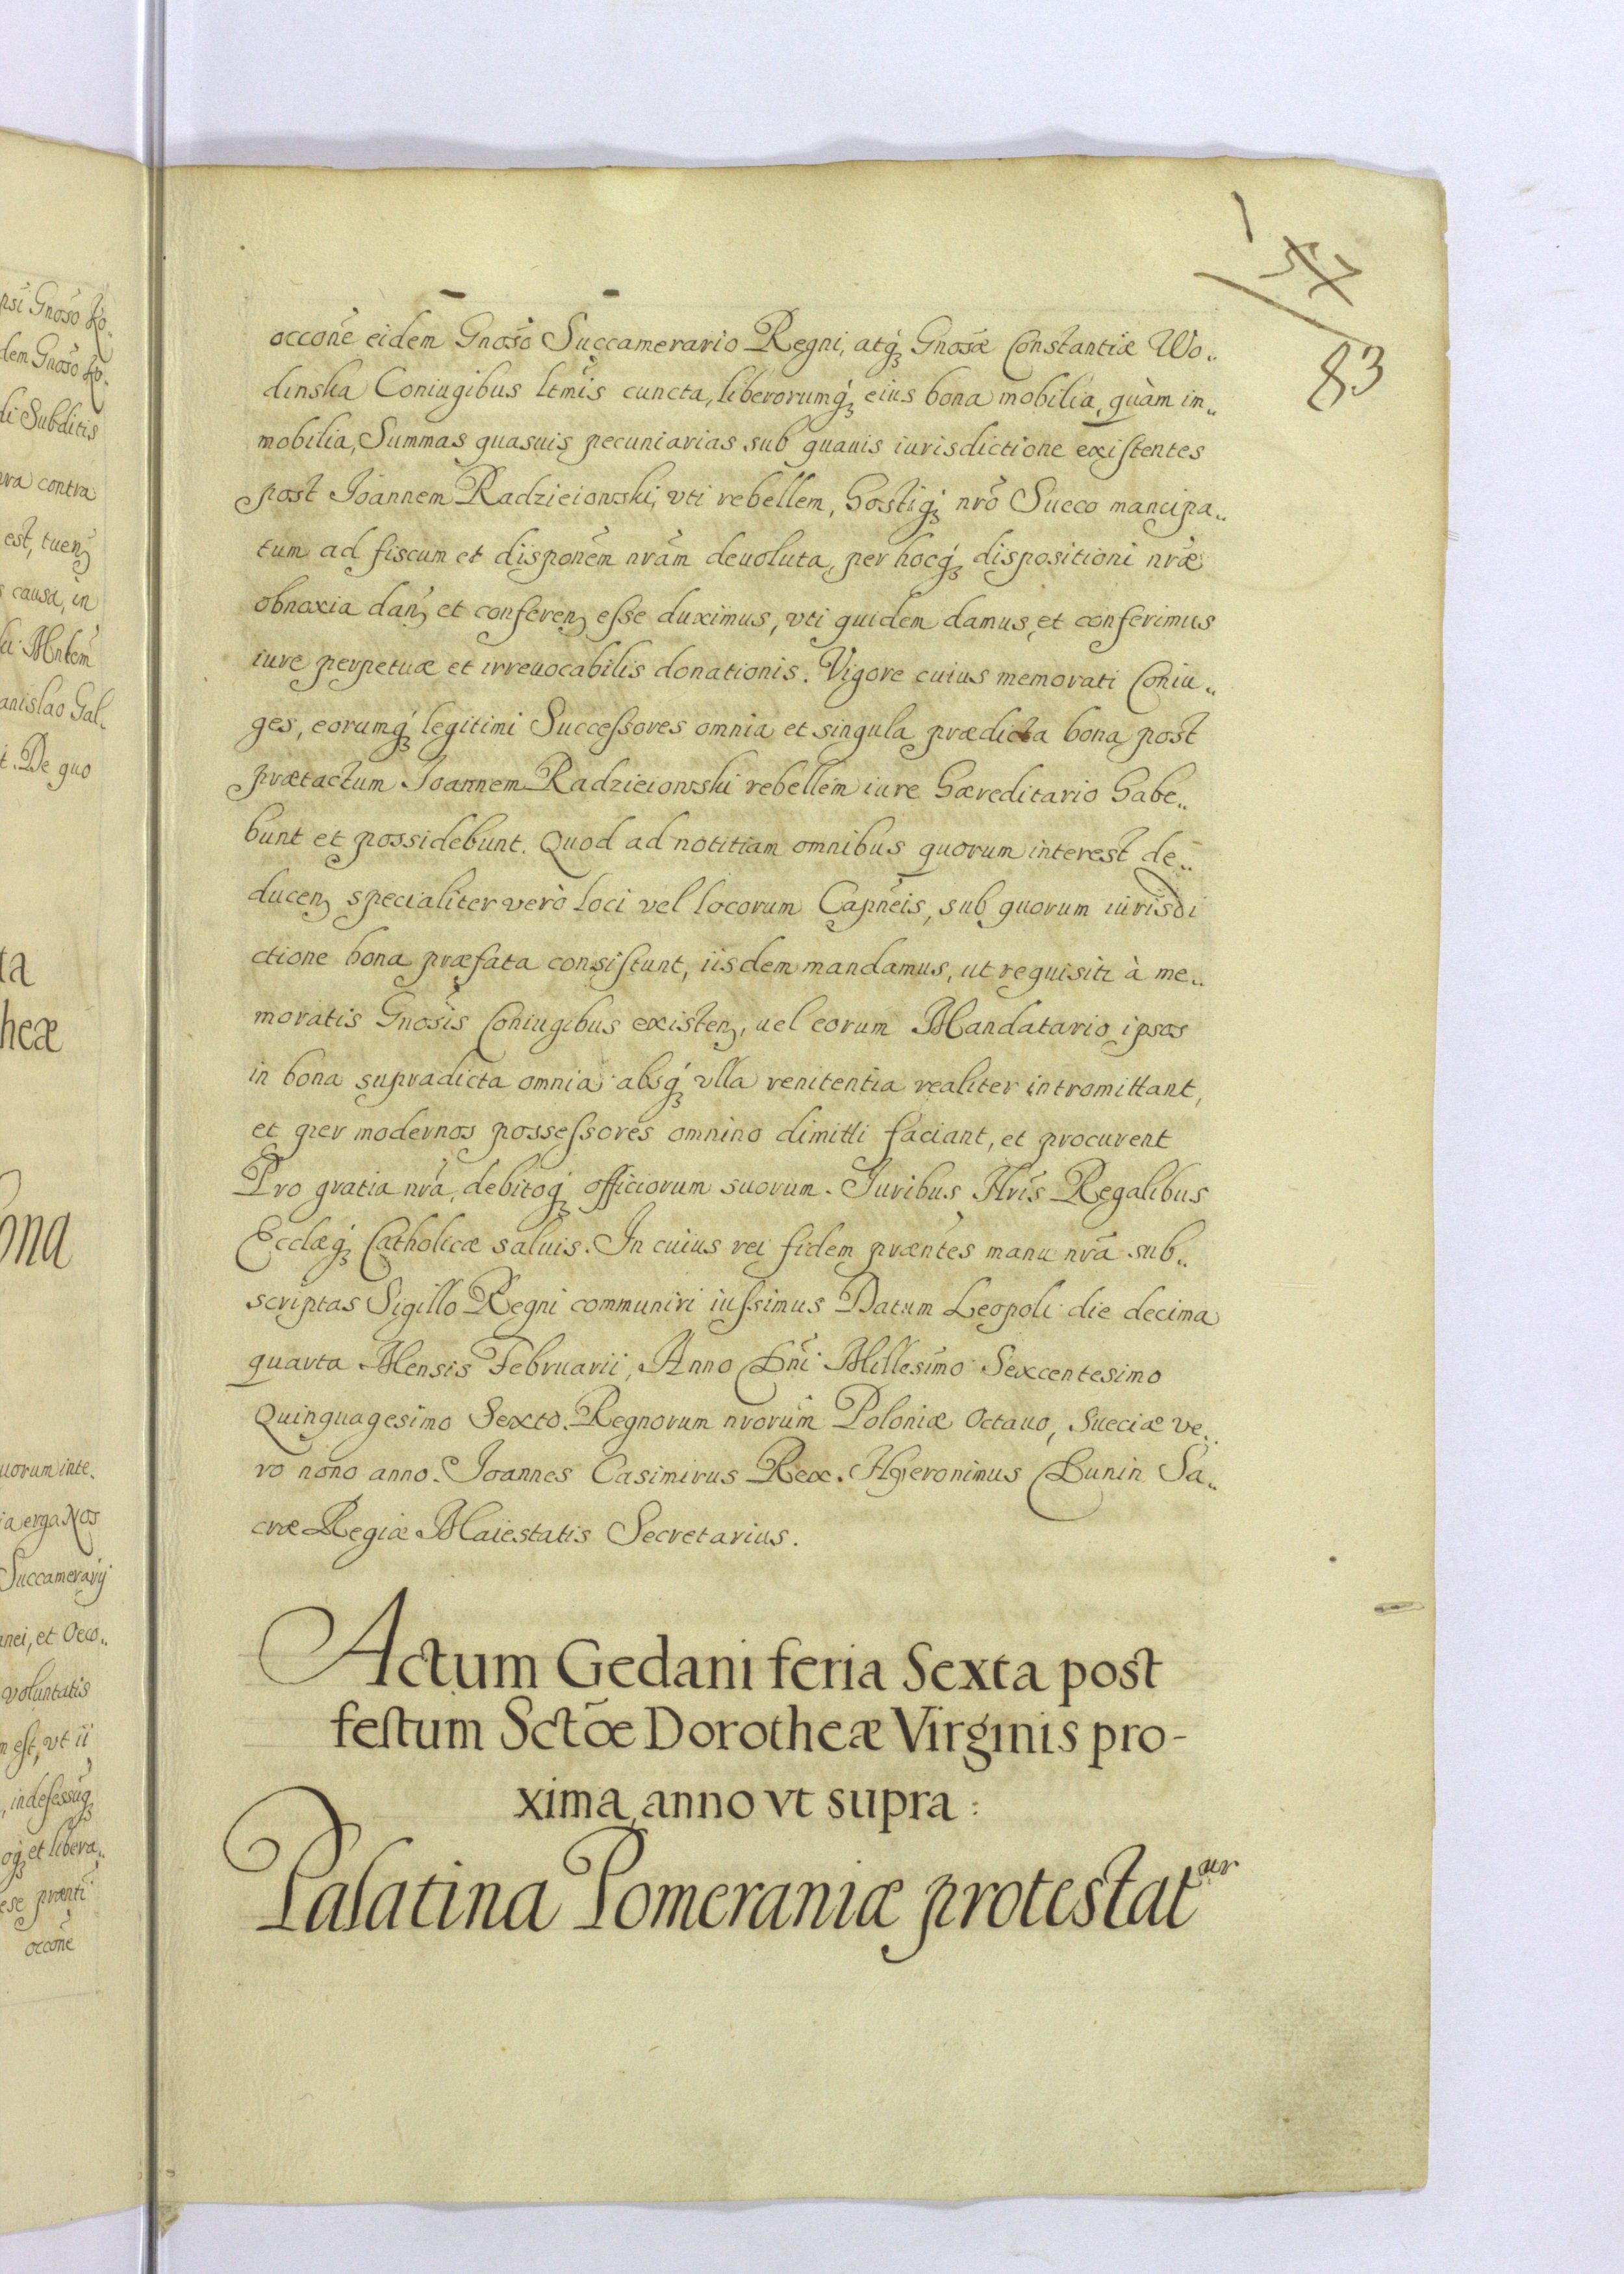 57
83
occoñe eidem Gnoso Succamerario Regni, atq́ʒ Gnosæ Constantiæ Wo„
dinska Coniugibus ltmis cuncta, liberorumq́ʒ eius bona mobilia, quàm im„
mobilia, Summas quasuis pecuniarias sub quauis iurisdictione existentes
post Joannem Radzieiowski, vti rebellem, hostiq́ʒ nrõ Sueco mancipa„
tum ad fiscum et disponem nrãm deuoluta, per hocq́ʒ dispositioni nræ
obnoxia danʒ et conferenʒ eſse duximus, vti quidem damus, et conferimus
iure perpetuæ et irreuocabilis donationis. Vigore cuius memorati Coniu„
ges, eorumq́ʒ legitimi Succeſsores omnia et singula prædicta bona post
prætactum Joannem Radzieiowski rebellem iure hæreditario habe„
bunt et possidebunt. Quod ad notitiam omnibus quorum interest de„
ducenʒ specialiter verò loci vel locorum Capneis, sub quorum iurisdi
ctione bona præfata consiſtunt, iisdem mandamus, ut requisiti à me„
moratis Gnosis Coniugibus existenʒ, uel eorum Mandatario ipsos
in bona supradicta omnia absq́ʒ vlla renitentia realiter intromittant,
et per modernos posseſsores omnino dimitti faciant, et procurent
Pro gratia nrã, debitoq́ʒ officiorum suorum. Juribus Nris Regalibus
Ecclæq́ʒ Catholicæ saluis. In cuius rei fidem præntes manu nrã sub„
scriptas Sigillo Regni communiri iuſsimus Datum Leopoli die decima
quarta Mensis Februarii, Anno Dñi Millesimo Sexcentesimo
Quinquagesimo Sexto. Regnorum nrorum Poloniæ Octauo, Sueciæ ve„
ro nono anno. Joannes Casimirus Rex. Hyeronimus Dunin Sa„
cræ Regiæ Maiestatis Secretarius.
Actum Gedani feria Sexta post
feſtum Sctõe Dorotheæ Virginis pro-
xima, anno vt supra:
Palatina Pomeraniæ protestatur